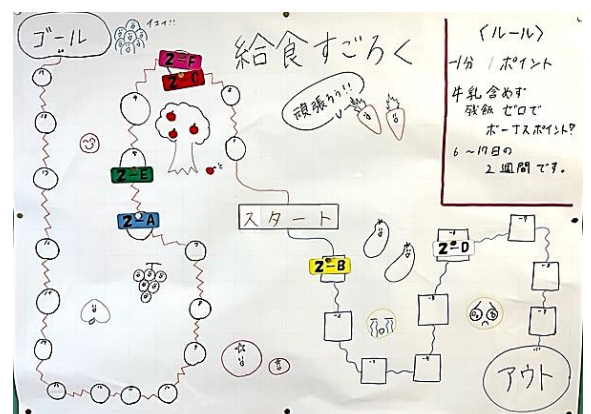 ゴール
イエイ!!
給食すごろく
頑張ろう!!
〈ルール〉
-1分 1ポイント
牛乳含めず
残飯ゼロで
ボーナスポイント?
6〜17日の
2週間です。
2-F
2-C
2-E
2-A
スタート
2-B
2-D
アウト